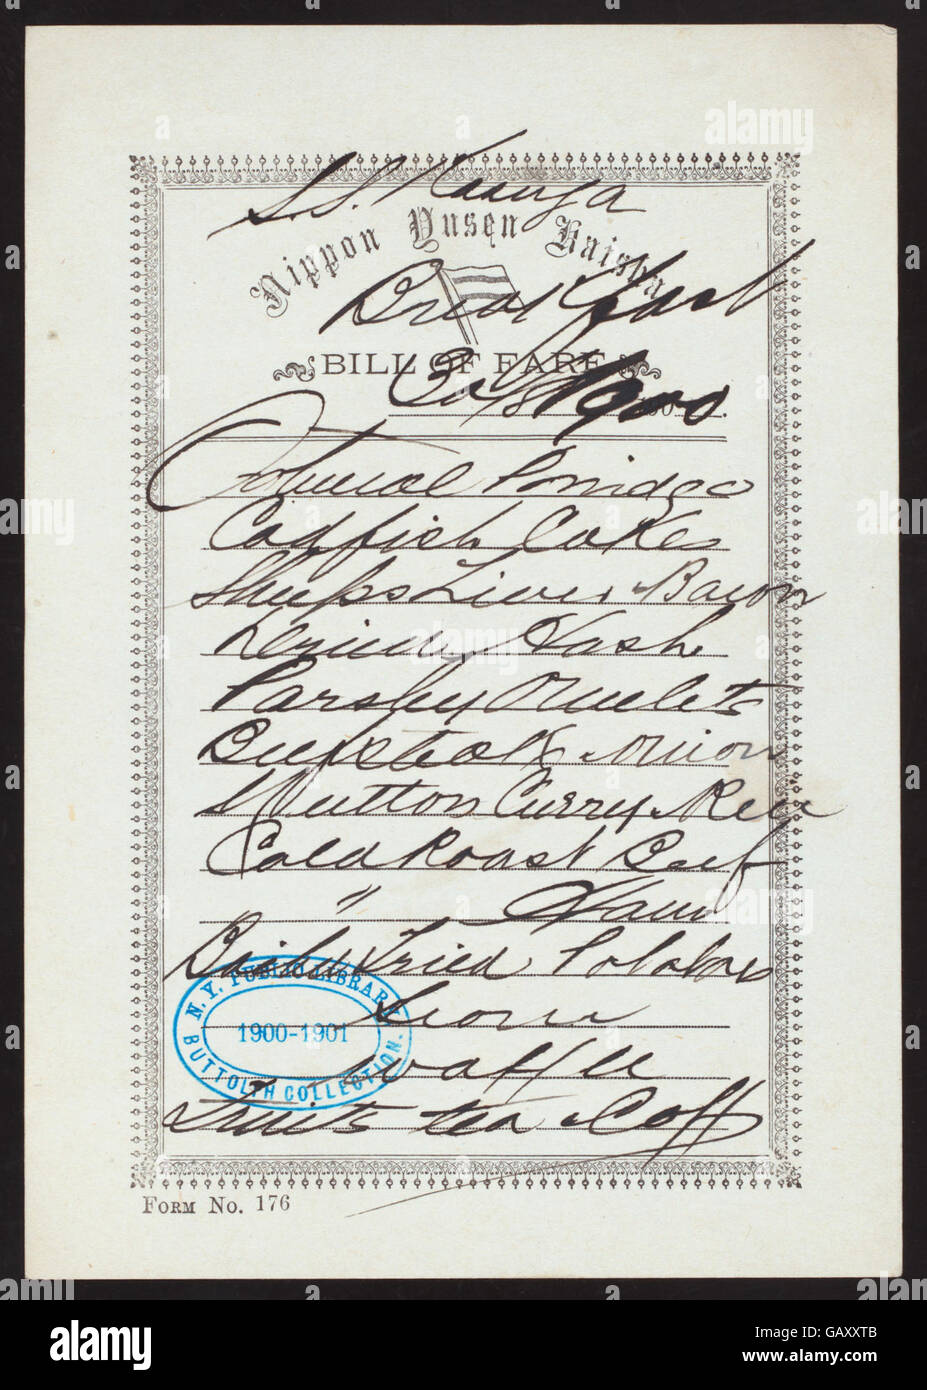 S.S.
Nippon Yusen Kaisha
Breakfast
BILL OF FARE
1900
Oatmeal Porridge
Codfish Cakes
Sheeps Liver Bacon
Hash
Parsley Omelets
Beefsteak Onion
Mutton Curry Rice
Cold Roast Beef
" Ham
Fried Potatoes
Scone
Waffle
Fruits tea Coff
N.Y. PUBLIC LIBRARY.
1900-1901
BUTTOLPH COLLECTION.
FORM No. 176
alamy
Image ID: GAXXTB
www.alamy.com